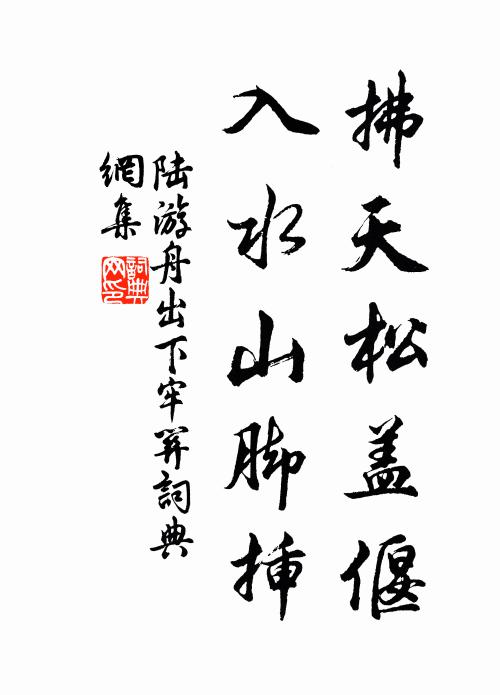 拂天松盖偃
入水山脚插
陆游舟出下牢关詞典
網集
詞典網印